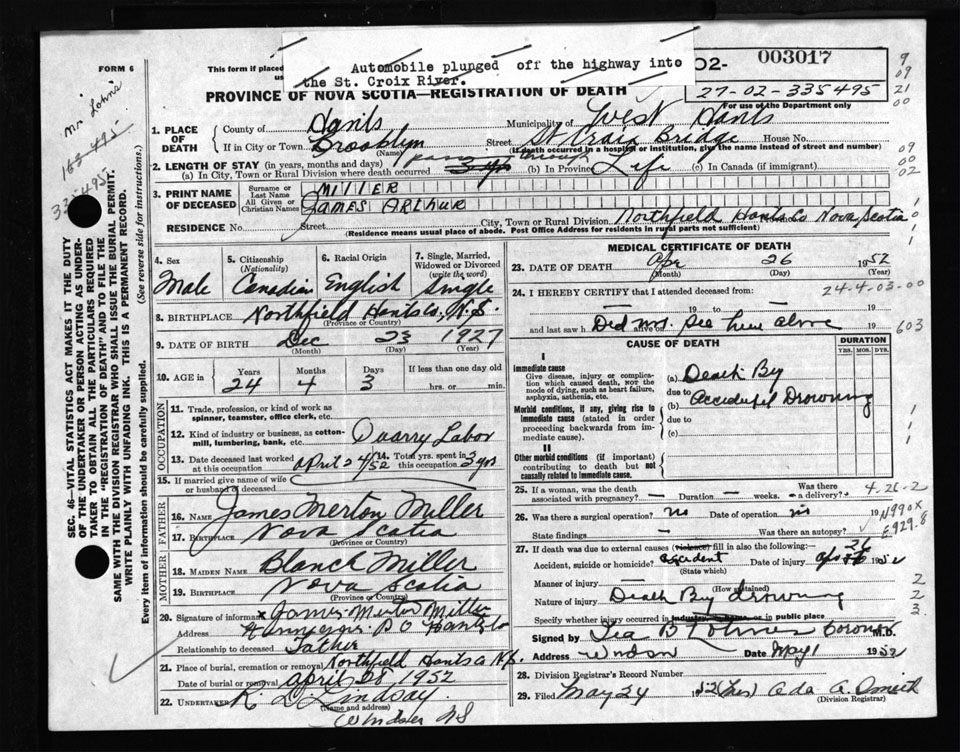 FORM 6
This form if placed
us
Automobile plunged off the highway into
the St. Croix River.
02-
003017
27-02-335495
For use of the Department only
PROVINCE OF NOVA SCOTIA—REGISTRATION OF DEATH
9
09
21
00
Mr Lohnes
163 495
335495
SEC. 46—VITAL STATISTICS ACT MAKES IT THE DUTY
OF THE UNDERTAKER OR PERSON ACTING AS UNDER-
TAKER TO OBTAIN ALL THE PARTICULARS REQUIRED
IN THE "REGISTRATION OF DEATH" AND TO FILE THE
SAME WITH THE DIVISION REGISTRAR WHO SHALL ISSUE THE BURIAL PERMIT.
WRITE PLAINLY WITH UNFADING INK. THIS IS A PERMANENT RECORD.
Every item of information should be carefully supplied. (See reverse side for instructions.)
1. PLACE OF DEATH
County of Hants Municipality of West Hants
If in City or Town Brooklyn Street St Croix Bridge House No.
(Name) (If death occurred in a hospital or institution, give the name instead of street and number)
2. LENGTH OF STAY (in years, months and days) passing through
(a) In City, Town or Rural Division where death occurred (b) In Province Life (c) In Canada (if immigrant)
09
00
02
3. PRINT NAME OF DECEASED
Surname or Last Name MILLER
All Given or Christian Names JAMES ARTHUR
RESIDENCE No. Street City, Town or Rural Division Northfield Hants Co Nova Scotia
(Residence means usual place of abode. Post Office Address for residents in rural parts not sufficient)
4. Sex Male
5. Citizenship (Nationality) Canadian
6. Racial Origin English
7. Single, Married, Widowed or Divorced (write the word) Single
8. BIRTHPLACE Northfield Hants Co., N.S.
(Province or Country)
9. DATE OF BIRTH Dec 23 1927
(Month) (Day) (Year)
10. AGE in Years Months Days If less than one day old
24 4 3 hrs. or min.
OCCUPATION
11. Trade, profession, or kind of work as
spinner, teamster, office clerk, etc.
12. Kind of industry or business, as cotton-
mill, lumbering, bank, etc. Quarry Labor
13. Date deceased last worked
at this occupation April 24/52
14. Total yrs. spent in
this occupation 3 yrs
15. If married give name of wife
or husband of deceased
FATHER
16. NAME James Merton Miller
17. BIRTHPLACE Nova Scotia
(Province or Country)
MOTHER
18. MAIDEN NAME Blanch Miller
19. BIRTHPLACE Nova Scotia
(Province or Country)
20. Signature of informant x James Merton Miller
Address P O Hants Co
Relationship to deceased Father
21. Place of burial, cremation or removal Northfield Hants Co N.S.
Date of burial or removal April 28, 1952
22. UNDERTAKER R D Lindsay
(Name and address)
Windsor NS
MEDICAL CERTIFICATE OF DEATH
23. DATE OF DEATH Apr 26 1952
(Month) (Day) (Year)
24. I HEREBY CERTIFY that I attended deceased from: 24-4-03-00
— 19 to — 19
and last saw h alive on Did not see him alive 19 603
CAUSE OF DEATH
DURATION
YRS. MOS. DYS.
I
Immediate cause
Give disease, injury or complica-
tion which caused death, NOT the
mode of dying, such as heart failure,
asphyxia, asthenia, etc.
(a) Death By
due to
Morbid conditions, if any, giving rise to
immediate cause (stated in order
proceeding backwards from im-
mediate cause).
(b) Accidental Drowning
due to
(c)
II
Other morbid conditions (if important)
contributing to death but not
causally related to immediate cause.
25. If a woman, was the death
associated with pregnancy? — Duration — weeks. Was there
a delivery? — 4-26-2
26. Was there a surgical operation? no Date of operation no 19
N990X
E929.8
State findings — Was there an autopsy?
27. If death was due to external causes (violence) fill in also the following:
Accident, suicide or homicide? accident Date of injury Apr 26 1952
(State which)
Manner of injury —
(How sustained)
Nature of injury Death By drowning
Specify whether injury occurred in industry, home, or in public place
2
2
3
Signed by Ira B Lohnes coroner M.D.
Address Windsor Date May 1 1952
28. Division Registrar's Record Number
29. Filed May 24 52 (Mrs) Ada A. Smith
(Division Registrar)